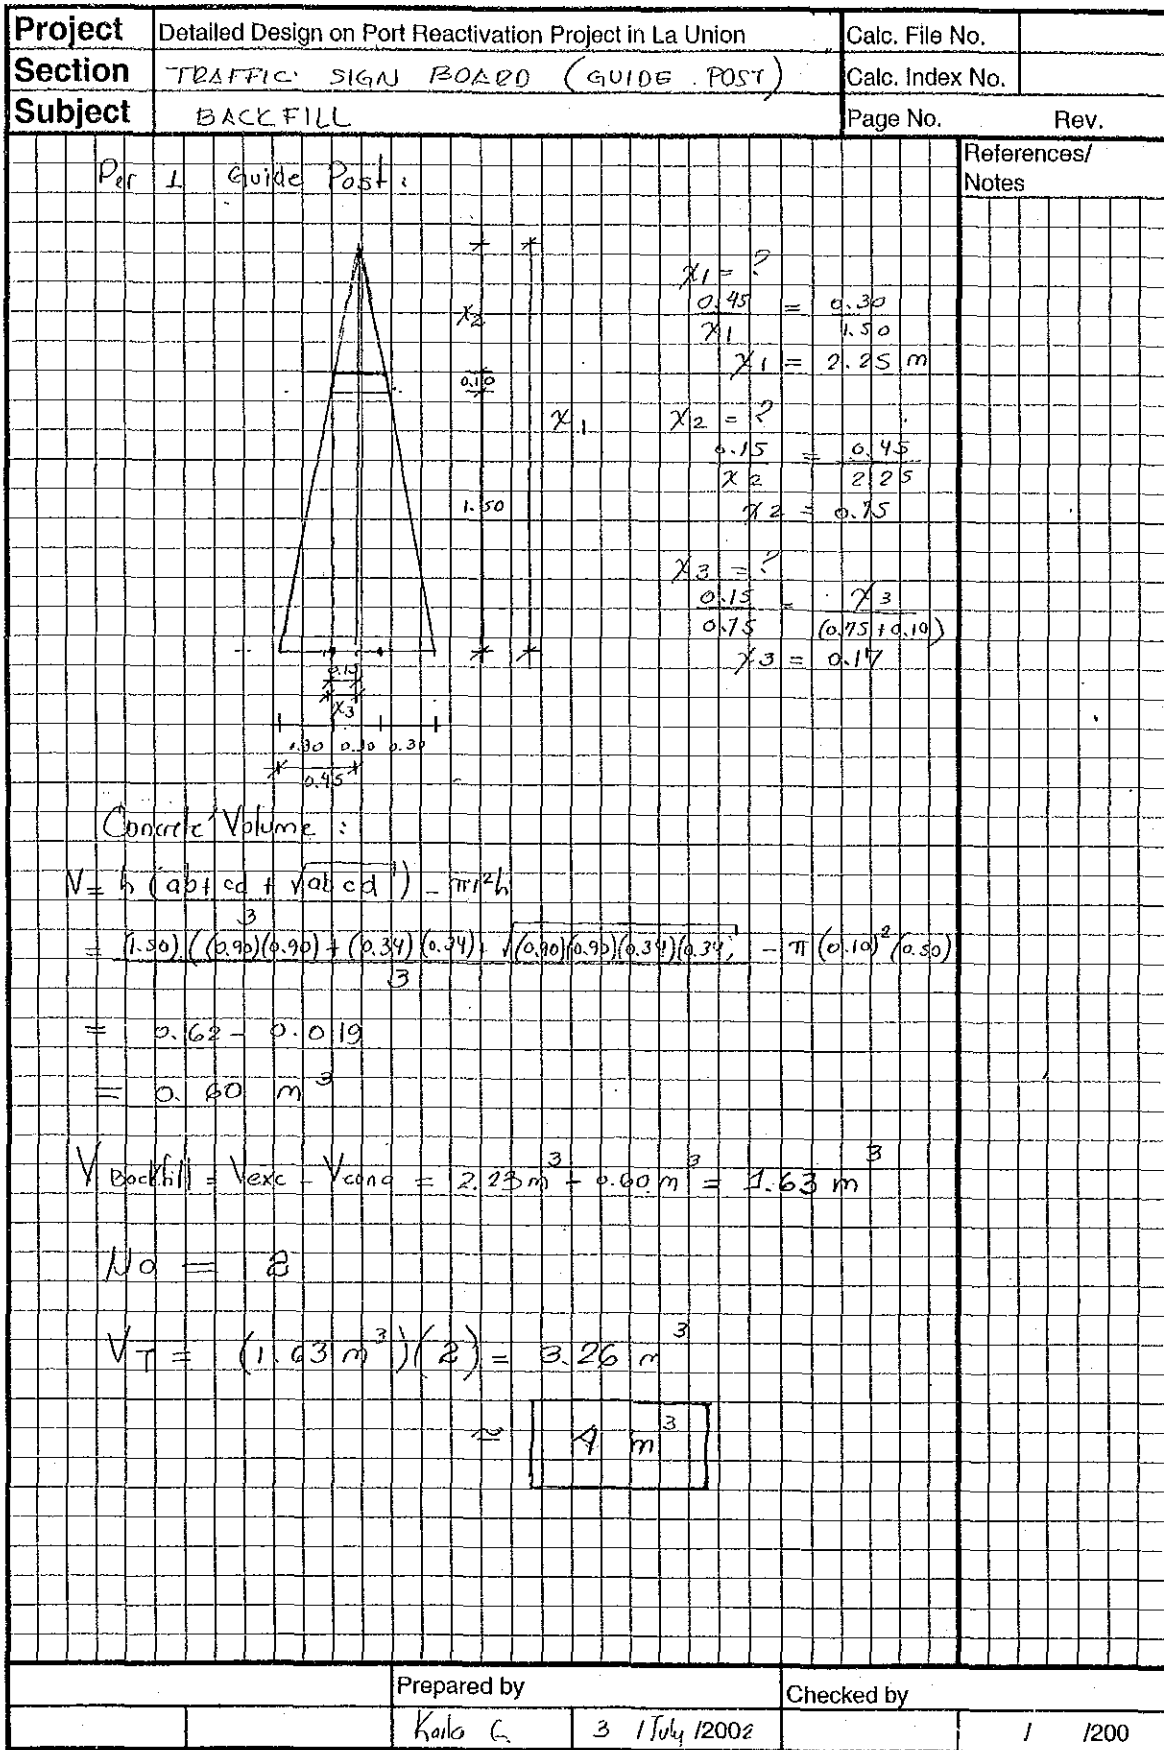 Project Detailed Design on Port Reactivation Project in La Union Calc. File No.
Section TRAFFIC SIGN BOARD (GUIDE POST) Calc. Index No.
Subject BACKFILL Page No. Rev.
References/
Notes
Per 1 Guide Post:
x1 = ?
0.45 / x1 = 0.30 / 1.50
x1 = 2.25 m
x2
0.10
x1
1.50
x2 = ?
0.15 / x2 = 0.45 / 2.25
x2 = 0.75
x3 = ?
0.15 / 0.75 = x3 / (0.75 + 0.10)
x3 = 0.17
0.15
x3
0.30 0.30 0.30
0.45
Concrete Volume :
V = h (ab + cd + √ab cd) / 3 - πr²h
= (1.50) ((0.90)(0.90) + (0.34)(0.34) + √(0.90)(0.90)(0.34)(0.34) / 3 - π (0.10)² (0.50)
= 0.62 - 0.019
= 0.60 m³
V Backfill = Vexc - Vconc = 2.23 m³ - 0.60 m³ = 1.63 m³
No = 2
VT = (1.63 m³)(2) = 3.26 m³
≈ 4 m³
Prepared by Checked by
3 / July / 2002 / /200